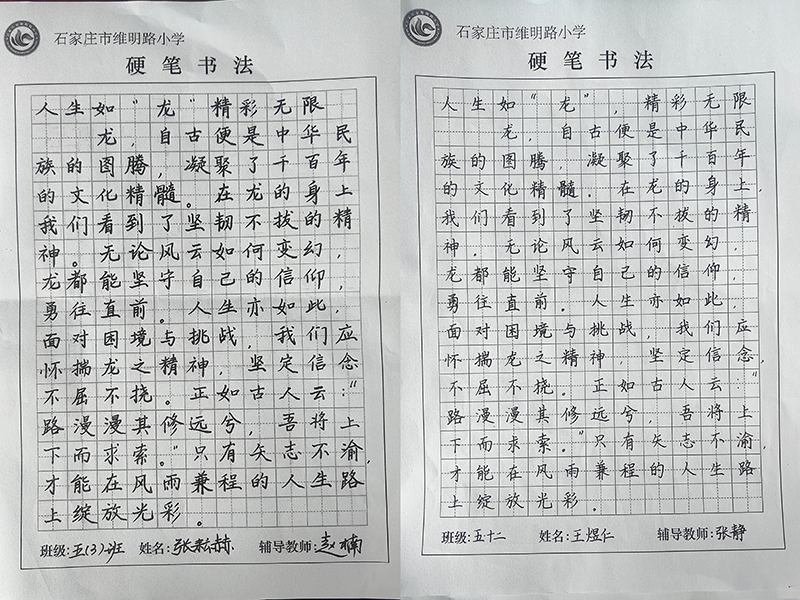 石家庄市维明路小学
硬笔书法
人生如“龙”精彩无限
龙，自古便是中华民
族的图腾，凝聚了千百年
的文化精髓。在龙的身上
我们看到了坚韧不拔的精
神。无论风云如何变幻，
龙都能坚守自己的信仰，
勇往直前。人生亦如此，
面对困境与挑战，我们应
怀揣龙之精神，坚定信念
不屈不挠。正如古人云：“
路漫漫其修远兮，吾将上
下而求索。”只有矢志不渝，
才能在风雨兼程的人生路
上绽放光彩。
班级:五(3)班 姓名:张耘赫 辅导教师:赵楠
石家庄市维明路小学
硬笔书法
人生如“龙”，精彩无限
龙，自古便是中华民
族的图腾，凝聚了千百年
的文化精髓。在龙的身上，
我们看到了坚韧不拔的精
神。无论风云如何变幻，
龙都能坚守自己的信仰，
勇往直前。人生亦如此，
面对困境与挑战，我们应
怀揣龙之精神，坚定信念，
不屈不挠。正如古人云：“
路漫漫其修远兮，吾将上
下而求索。”只有矢志不渝，
才能在风雨兼程的人生路
上绽放光彩。
班级:五十二 姓名:王煜仁 辅导教师:张静